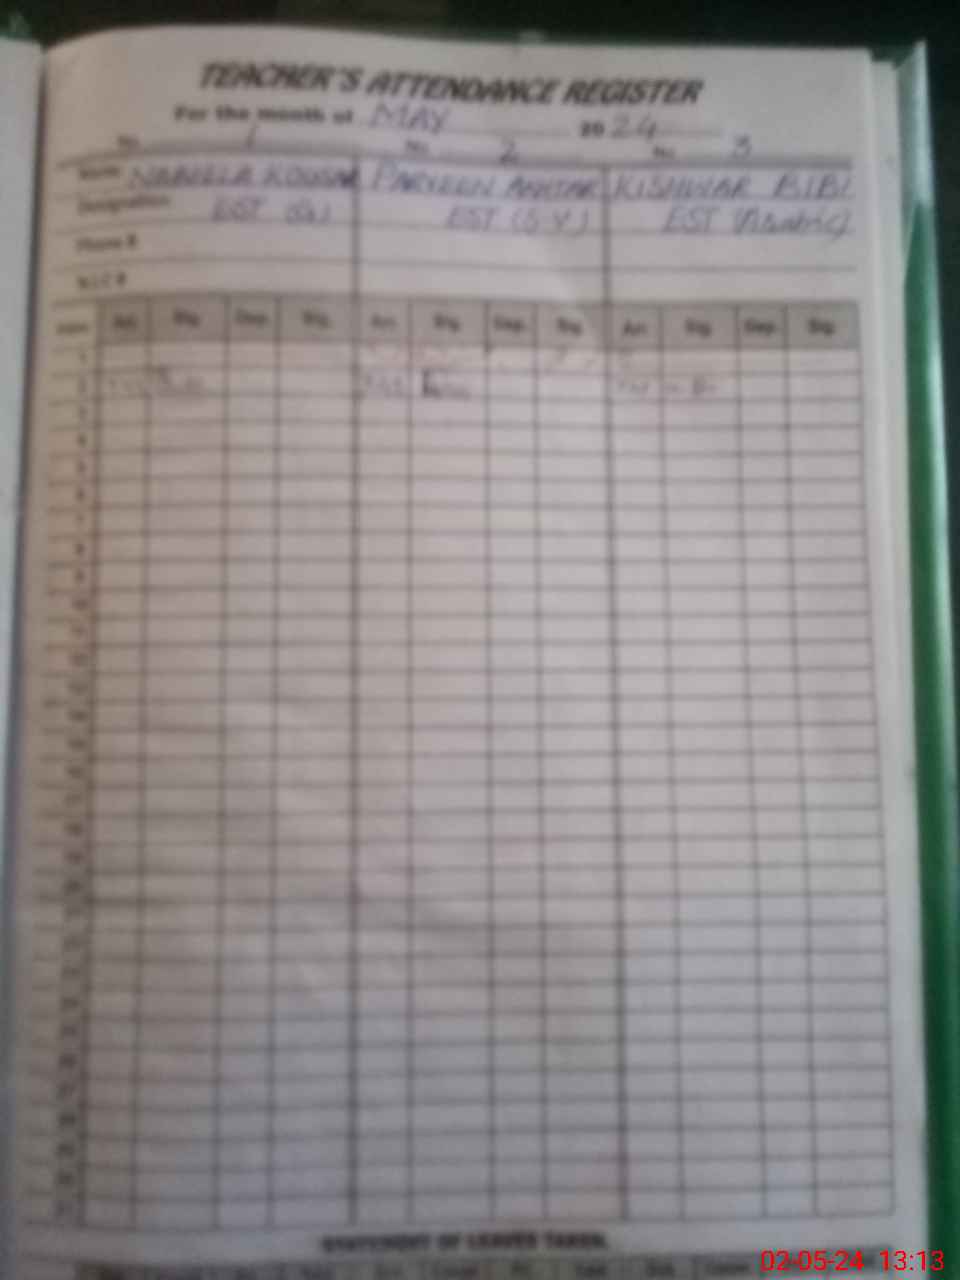 TEACHER'S ATTENDANCE REGISTER
For the month of MAY 2024
No. 1 No. 2 No. 3
Name NABEELA KOUSAR PARVEEN AKHTAR KISHWAR BIBI
Designation EST (G) EST (S.V) EST (Arabic)
Phone #
N.I.C #
Date Arr. Sig. Dep. Sig. Arr. Sig. Dep. Sig. Arr. Sig. Dep. Sig.
1
2
3
4
5
6
7
8
9
10
11
12
13
14
15
16
17
18
19
20
21
22
23
24
25
26
27
28
29
30
31
STATEMENT OF LEAVES TAKEN.
02-05-24 13:13